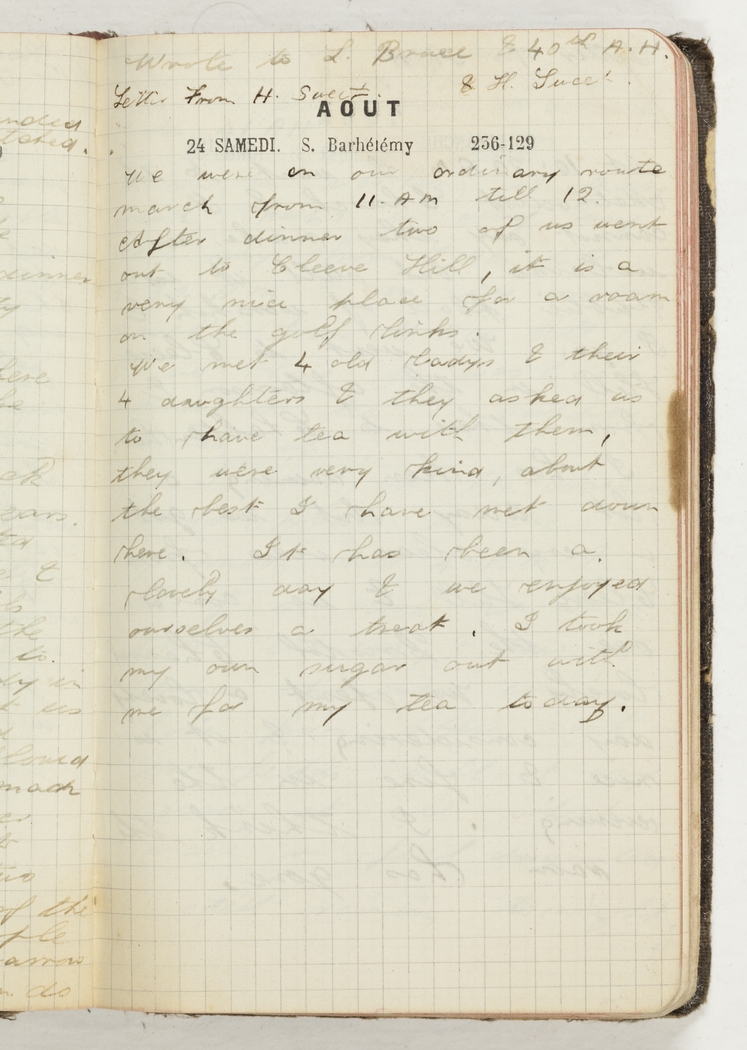 Wrote to L. Bruce & 40th A.H.
Letter From H. Suett. & H. Suett.
AOUT
24 SAMEDI. S. Barhélémy 236-129
We were on our ordinary route
march from 11. Am till 12.
After dinner two of us went
out to Cleeve Hill, it is a
very nice place for a roam
on the golf links.
We met 4 old ladys & their
4 daughters & they asked us
to have tea with them,
they were very kind, about
the best I have met down
here. It has been a
lovely day & we enjoyed
ourselves a treat. I took
my own sugar out with
me for my tea today.